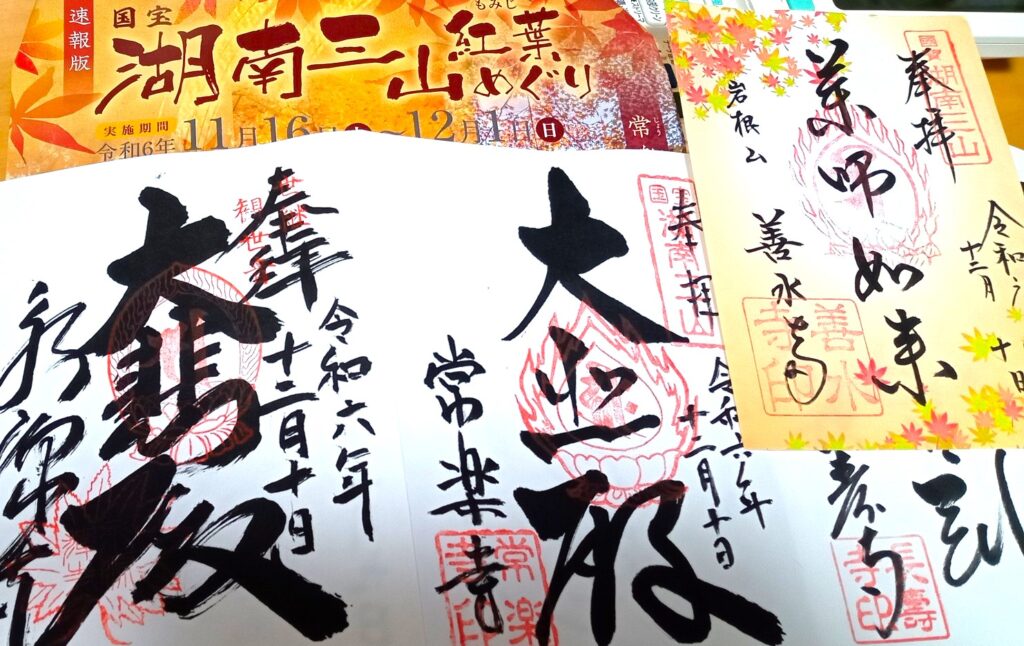 速報版
国宝
湖南三山
もみじ
紅葉
めぐり
実施期間
令和6年
11月16日
～12月1日日
常
じょう
奉拝
国宝湖南三山
薬師如来
岩根山
善永寺
善水寺印
令和六
十二月
十日
奉拝
令和六年
十二月十日
大悲殿
奉拝
国宝湖南三山
令和六年
十二月十日
大悲殿
常楽寺
常楽寺印
長寿寺
長壽寺印